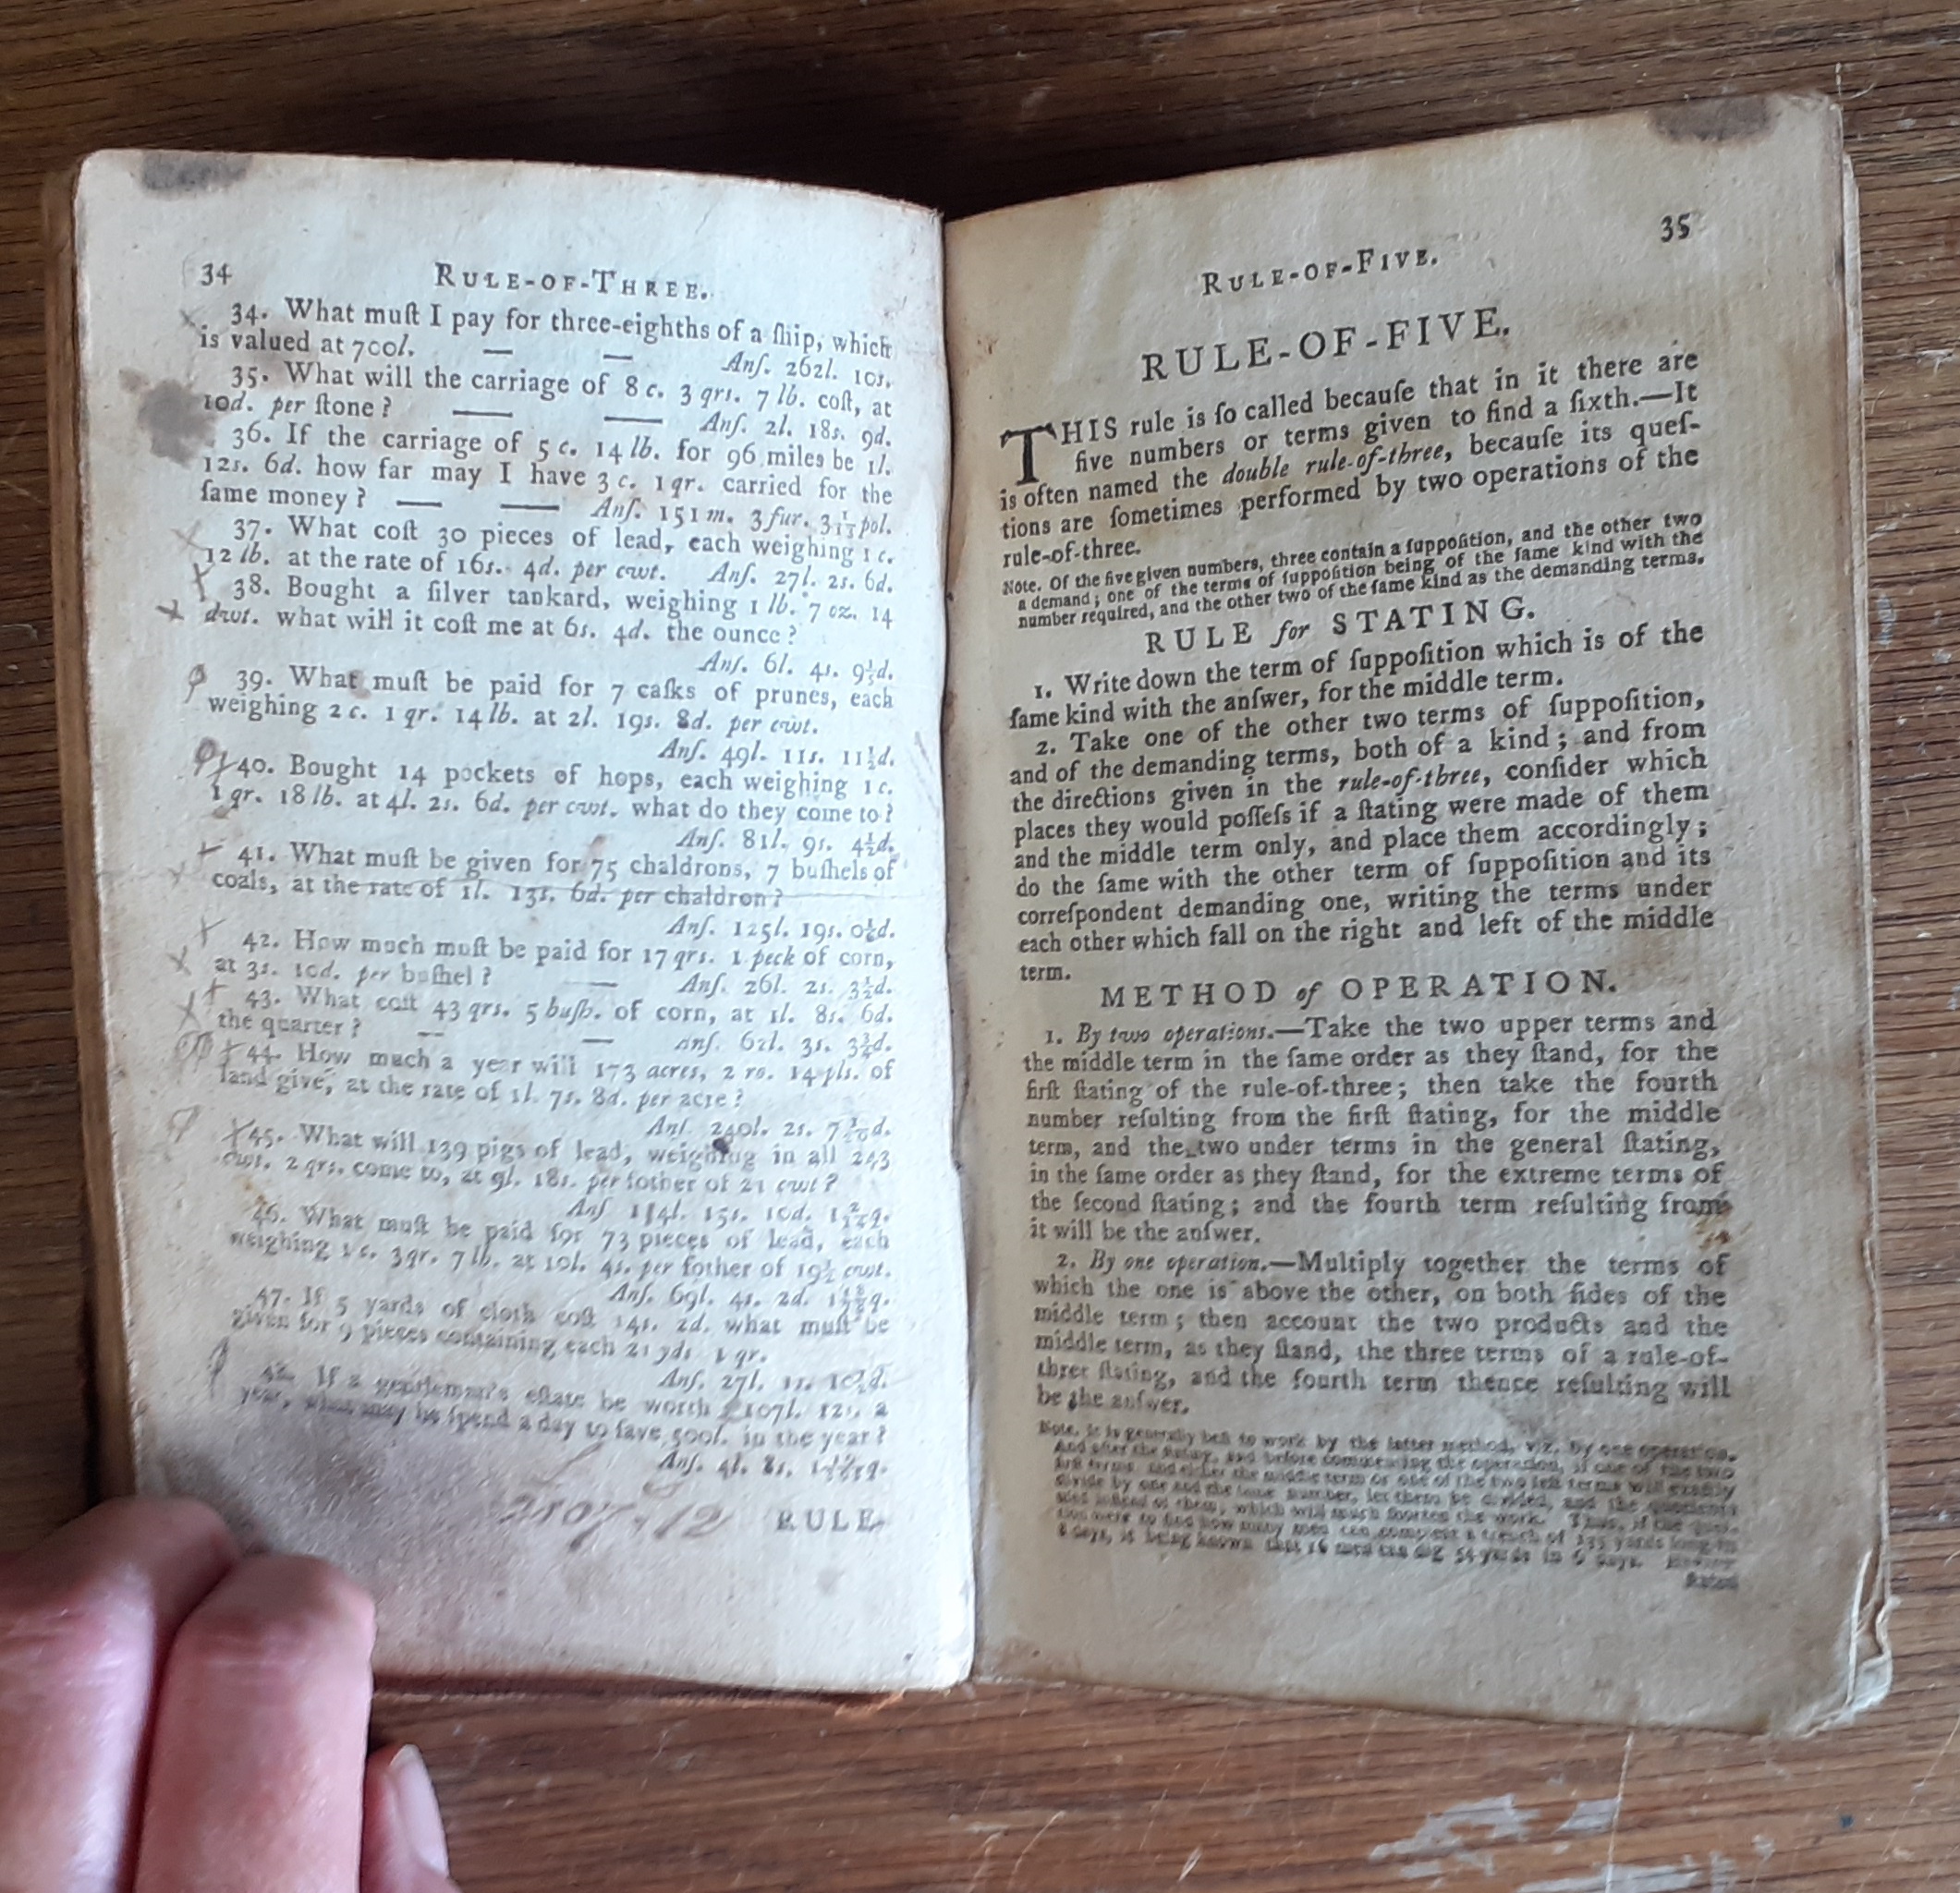 34
RULE-OF-THREE.
34. What muſt I pay for three-eighths of a ſhip, which
is valued at 700l. — — Anſ. 262l. 10s.
35. What will the carriage of 8 c. 3 qrs. 7 lb. coſt, at
10d. per ſtone? — — Anſ. 2l. 18s. 9d.
36. If the carriage of 5 c. 14 lb. for 96 miles be 1l.
12s. 6d. how far may I have 3 c. 1 qr. carried for the
ſame money? — — Anſ. 151 m. 3 fur. 3 1/13 pol.
37. What coſt 30 pieces of lead, each weighing 1 c.
12 lb. at the rate of 16s. 4d. per cwt. Anſ. 27l. 2s. 6d.
38. Bought a ſilver tankard, weighing 1 lb. 7 oz. 14
dwt. what will it coſt me at 6s. 4d. the ounce?
Anſ. 6l. 4s. 9 1/5d.
39. What muſt be paid for 7 caſks of prunes, each
weighing 2 c. 1 qr. 14 lb. at 2l. 19s. 8d. per cwt.
Anſ. 49l. 11s. 11½d.
40. Bought 14 pockets of hops, each weighing 1 c.
1 qr. 18 lb. at 4l. 2s. 6d. per cwt. what do they come to?
Anſ. 81l. 9s. 4½d.
41. What muſt be given for 75 chaldrons, 7 buſhels of
coals, at the rate of 1l. 13s. 6d. per chaldron?
Anſ. 125l. 19s.
42. How much muſt be paid for 17 qrs. 1 peck of corn,
at 3s. 10d. per buſhel? — Anſ. 26l. 2s. 3½d.
43. What coſt 43 qrs. 5 buſh. of corn, at 1l. 8s. 6d.
the quarter? — — Anſ. 62l. 3s. 3¾d.
44. How much a year will 173 acres, 2 ro. 14 pls. of
land give, at the rate of 1l. 7s. 8d. per acre?
Anſ. 240l. 2s.
45. What will 139 pigs of lead, weighing in all 243
cwt. 2 qrs. come to, at 9l. 18s. per fother of 21 cwt?
Anſ 114l. 15s. 10d.
46. What muſt be paid for 73 pieces of lead, each
weighing 1 c. 3 qr. 7 lb. at 10l. 4s. per fother of 19½ cwt.
Anſ. 69l. 4s. 2d.
47. If 5 yards of cloth coſt 14s. 2d. what muſt be
given for 9 pieces containing each 21 yds 1 qr.
Anſ. 27l. 1s.
48. If a gentleman's eſtate be worth 2107l. 12s. a
year, what may he ſpend a day to ſave 500l. in the year?
Anſ. 4l. 8s.
2107.12
RULE-
35
RULE-OF-FIVE.
RULE-OF-FIVE.
THIS rule is ſo called becauſe that in it there are
five numbers or terms given to find a ſixth.—It
is often named the double rule-of-three, becauſe its queſ-
tions are ſometimes performed by two operations of the
rule-of-three.
Note. Of the five given numbers, three contain a ſuppoſition, and the other two
a demand; one of the terms of ſuppoſition being of the ſame kind with the
number required, and the other two of the ſame kind as the demanding terms.
RULE for STATING.
1. Write down the term of ſuppoſition which is of the
ſame kind with the anſwer, for the middle term.
2. Take one of the other two terms of ſuppoſition,
and of the demanding terms, both of a kind; and from
the directions given in the rule-of-three, conſider which
places they would poſſeſs if a ſtating were made of them
and the middle term only, and place them accordingly;
do the ſame with the other term of ſuppoſition and its
correſpondent demanding one, writing the terms under
each other which fall on the right and left of the middle
term.
METHOD of OPERATION.
1. By two operations.—Take the two upper terms and
the middle term in the ſame order as they ſtand, for the
firſt ſtating of the rule-of-three; then take the fourth
number reſulting from the firſt ſtating, for the middle
term, and the two under terms in the general ſtating,
in the ſame order as they ſtand, for the extreme terms of
the ſecond ſtating; and the fourth term reſulting from
it will be the anſwer.
2. By one operation.—Multiply together the terms of
which the one is above the other, on both ſides of the
middle term; then account the two products and the
middle term, as they ſtand, the three terms of a rule-of-
three ſtating, and the fourth term thence reſulting will
be the anſwer.
Note. It is generally beſt to work by the latter method, viz. by one operation.
And after the ſtating, and before commencing the operation, if one of the two
firſt terms and either the middle term or one of the two laſt terms will exactly
divide by one and the ſame number, let them be divided, and the quotients
uſed inſtead of them, which will much ſhorten the work. Thus, if the queſ-
tion were to find how many men can complete a trench of 135 yards long in
8 days, it being known that 16 men can dig 54 yards in 6 days.
ſtated